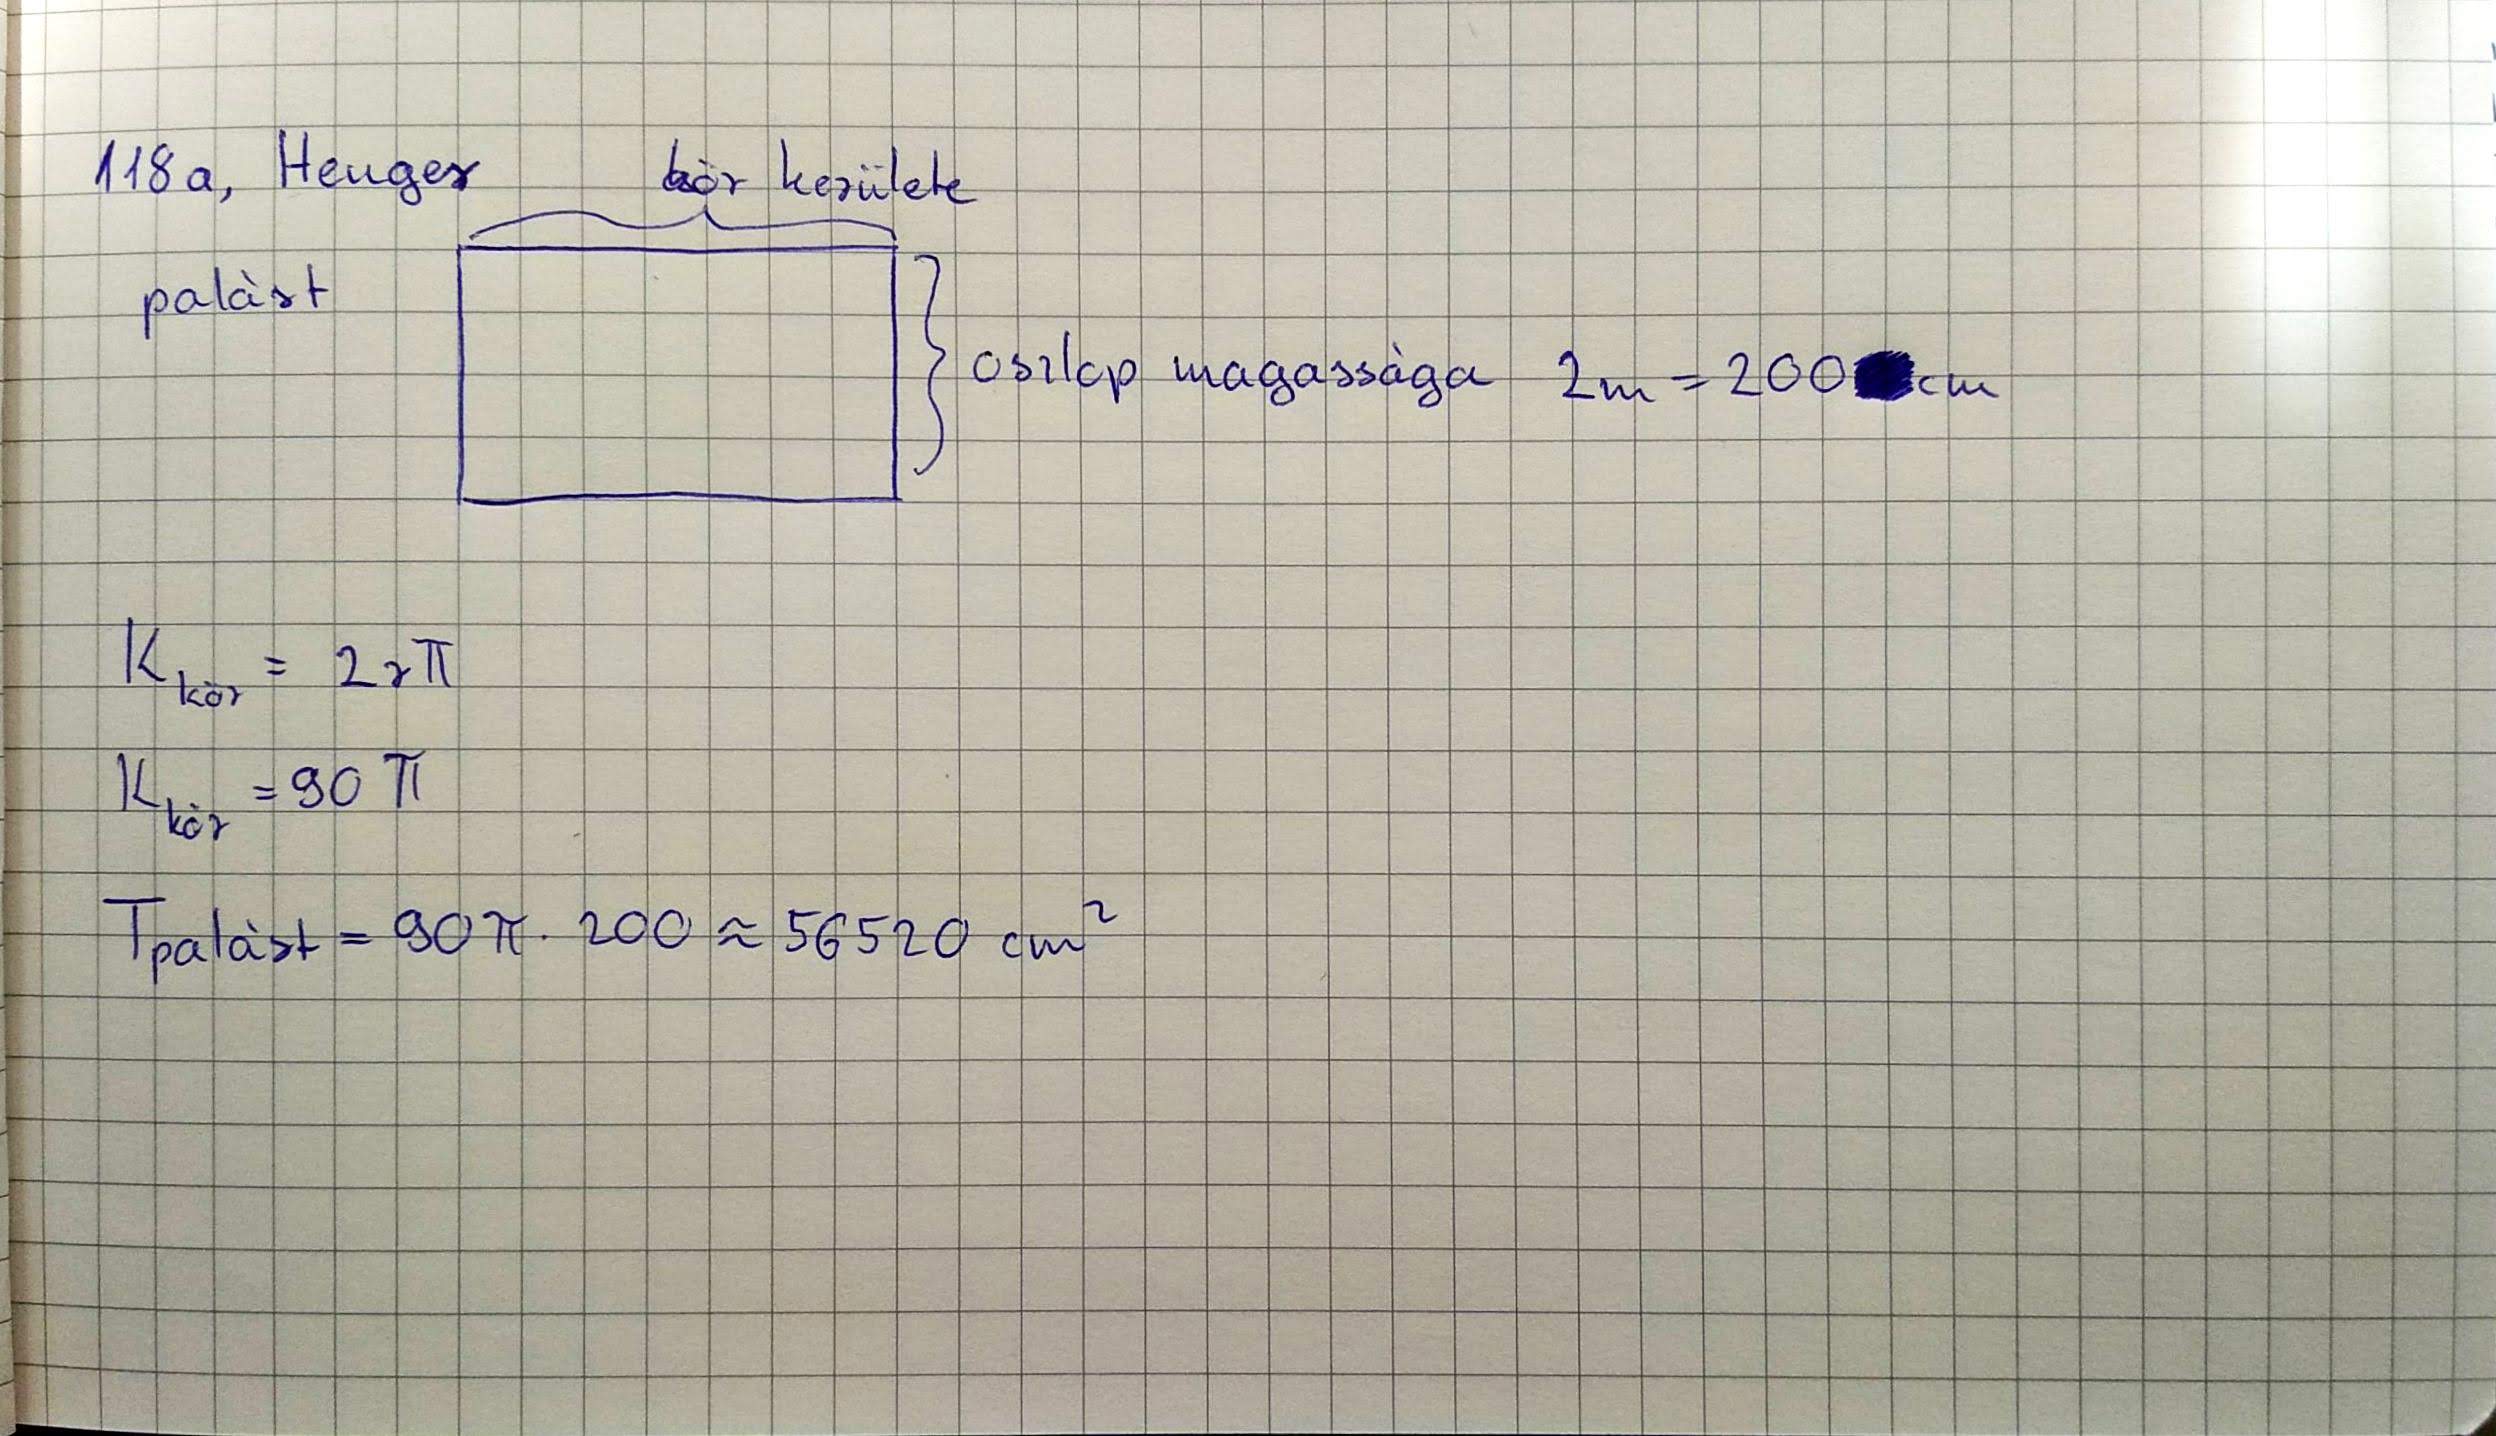 118a, Henger
kör kerülete
palást
oszlop magassága 2m = 200 cm
K kör = 2rπ
K kör = 90 π
T palást = 90π · 200 ≈ 56520 cm²